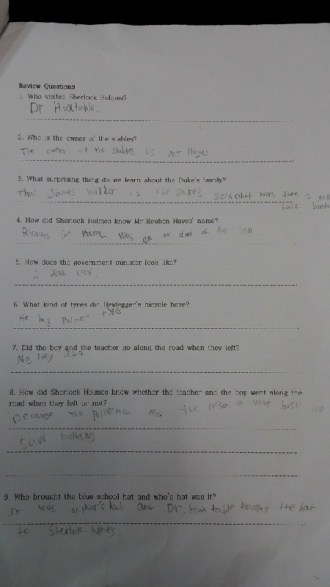 Review Questions
1. Who visited Sherlock Holmes?
Dr. Huxtable
2. Who is the owner of the stables?
The owner of the stables is mr Hayes
3. What surprising thing do we learn about the Duke's family?
That James Wilder is the Dukes
4. How did Sherlock Holmes know Mr Reuben Hayes' name?
Because his name was on the
5. How does the government minister look like?
I dont know
6. What kind of tyres did Heidegger's bicycle have?
He has Palmer tyres
7. Did the boy and the teacher go along the road when they left?
No they
8. How did Sherlock Holmes know whether the teacher and the boy went along the
road when they left or not?
Because the policeman
said nobody
9. Who brought the blue school hat and who's hat was it?
It was Arthur's hat and Dr. Huxtable brought the hat
to Sherlock Holmes